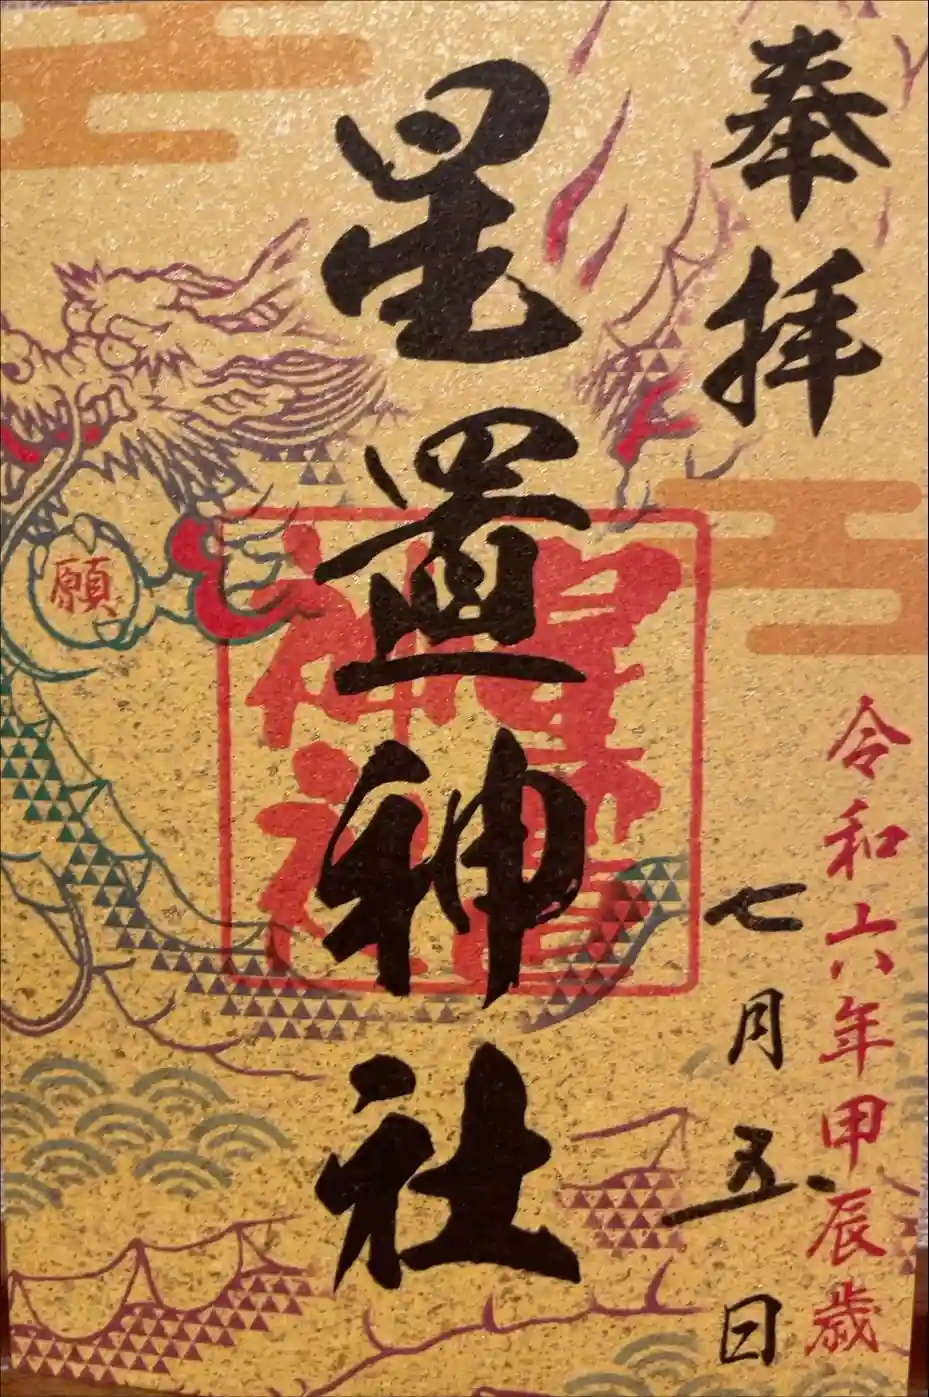 奉拝
令和六年甲辰歳
七月五日
星置神社
星置
神社
願